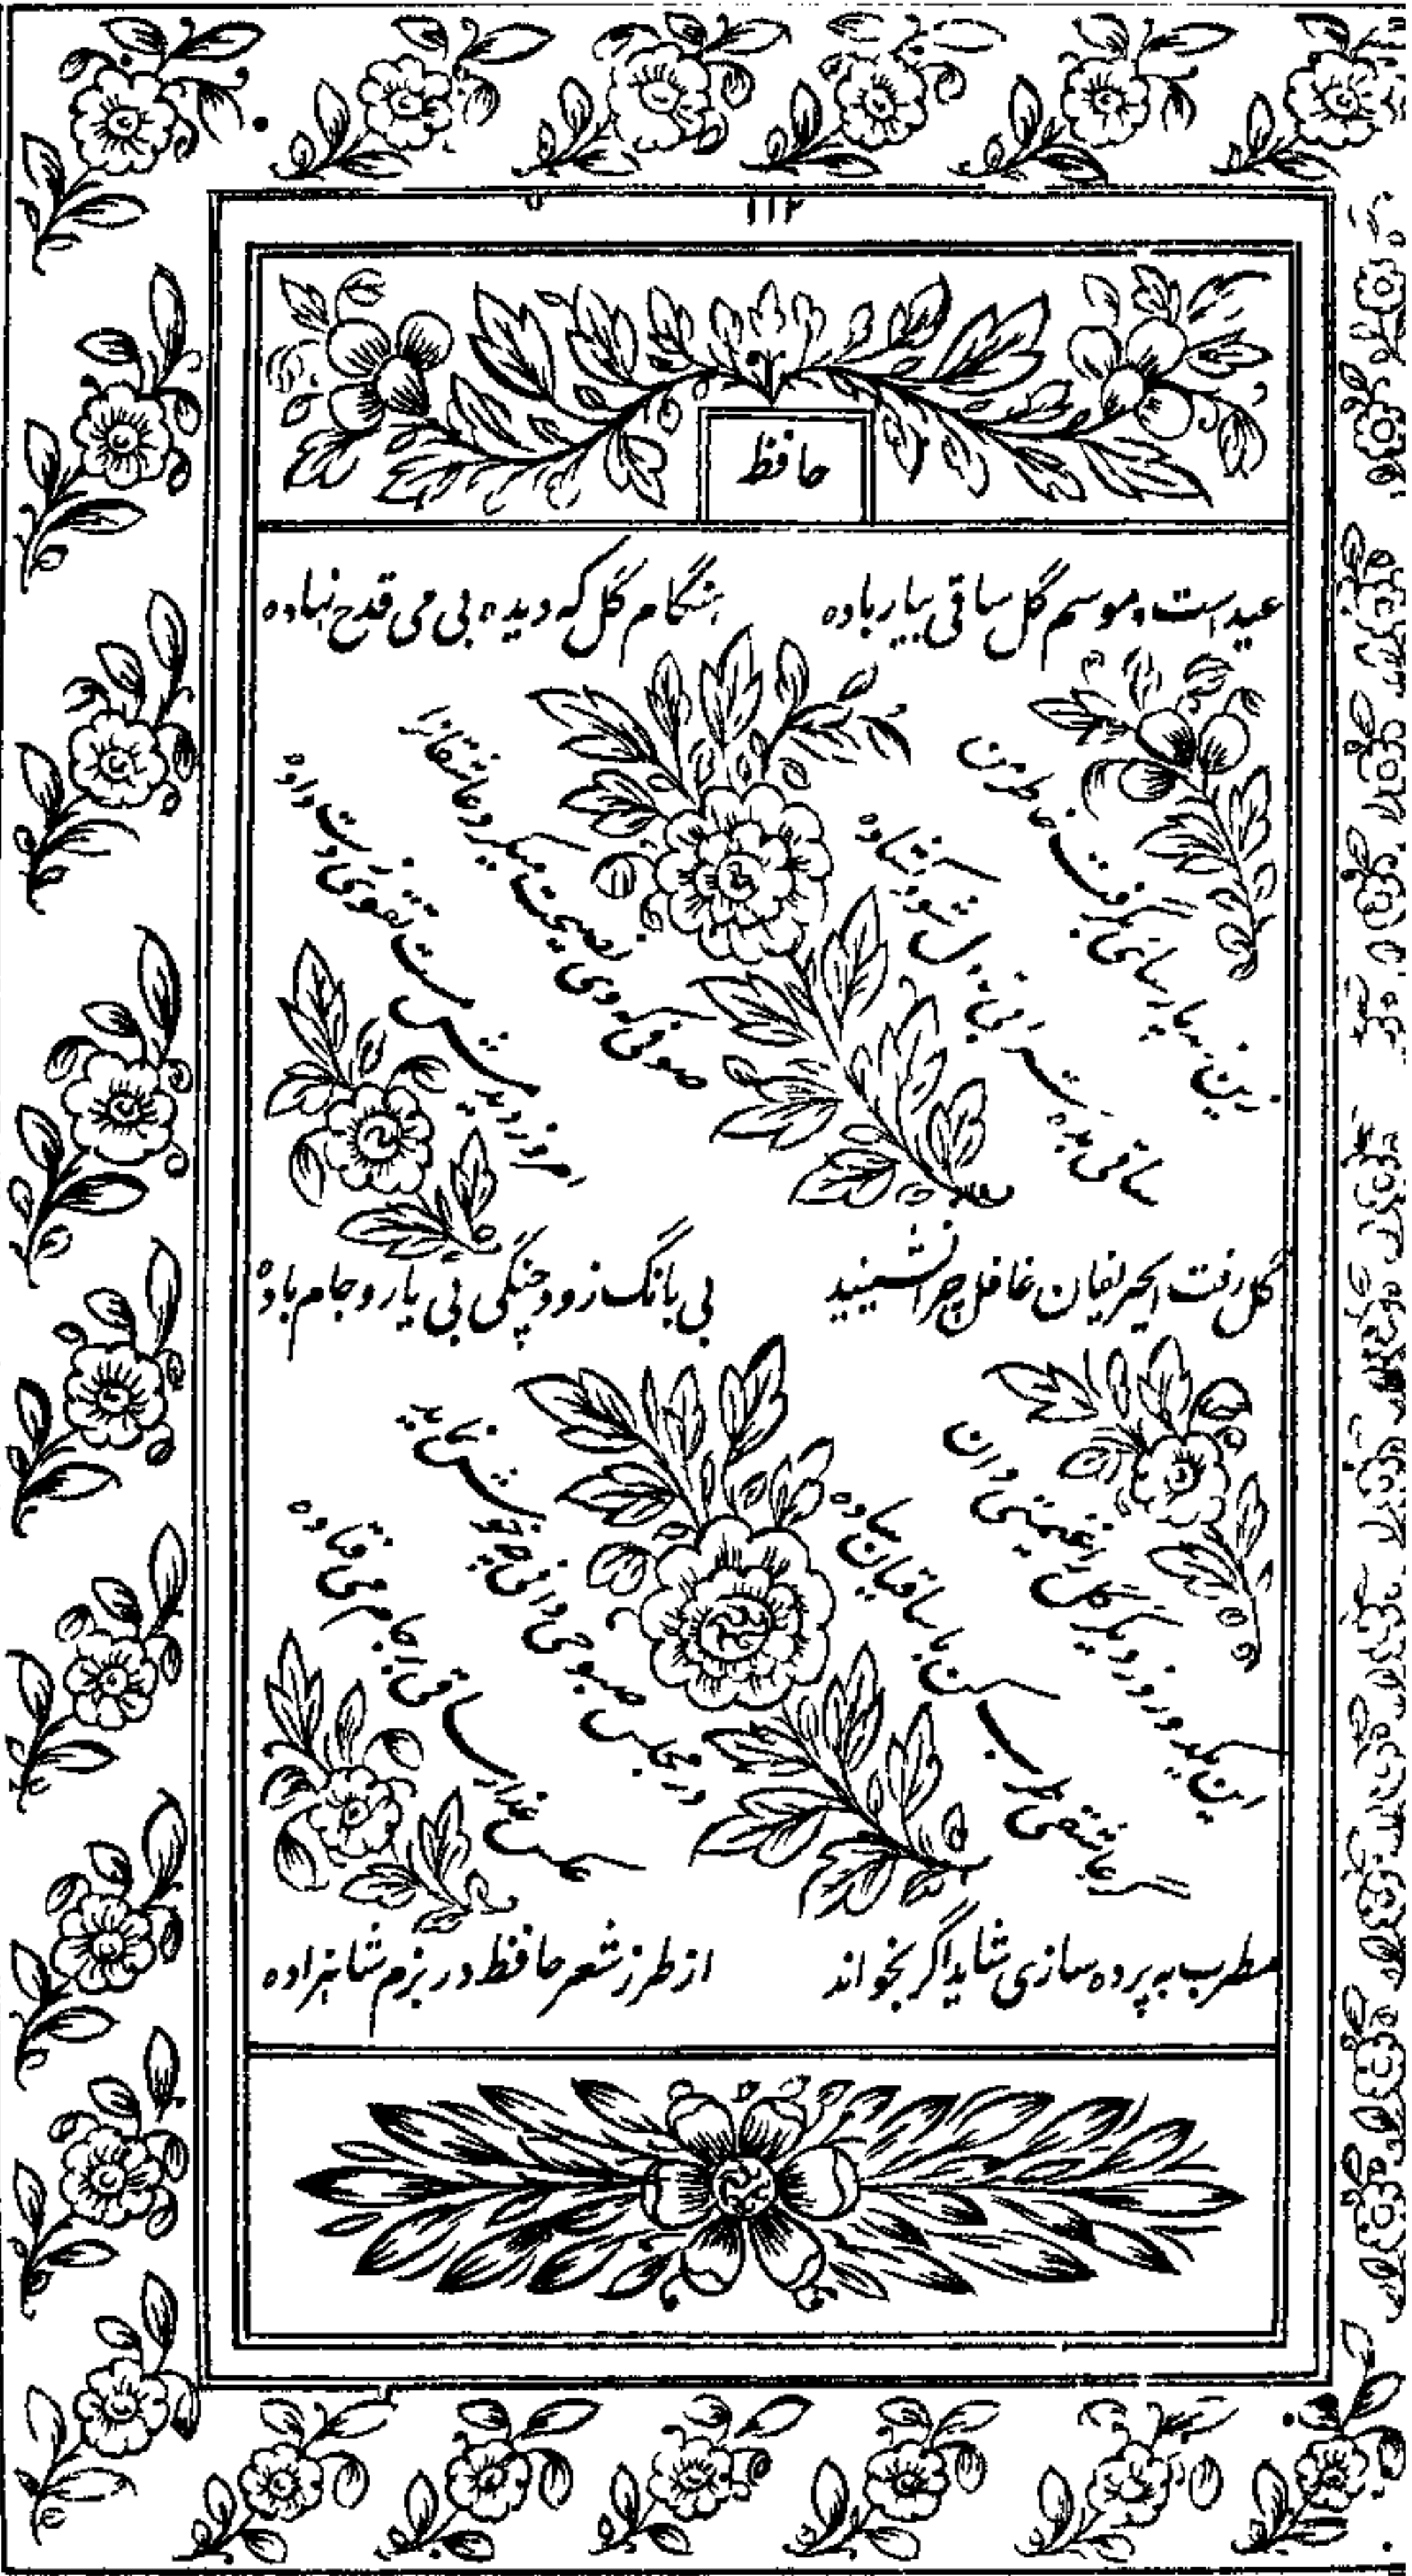 ۱۱۲
حافظ
عید است و موسم گل ساقی بیار باده
هنگام گل که دیده بی می قدح نهاده
زین زهد و پارسائی بگرفت خاطر من
ساقی بده شرابی تا دل شود گشاده
صوفی که دی نصیحت میکرد عاشقانرا
امروز دیدمش مست تقوی بباد داده
گل رفت ایحریفان غافل چرا نشینید
بی بانگ رود و چنگی بی یار و جام باده
این یکدو روز دیگر گل را غنیمتی دان
گر عاشقی طرب کن با ساقیان ساده
در مجلس صبوحی دانی چه خوش نماید
عکس عذار ساقی در جام می فتاده
مطرب به پرده سازی شاید اگر بخواند
از طرز شعر حافظ در بزم شاهزاده